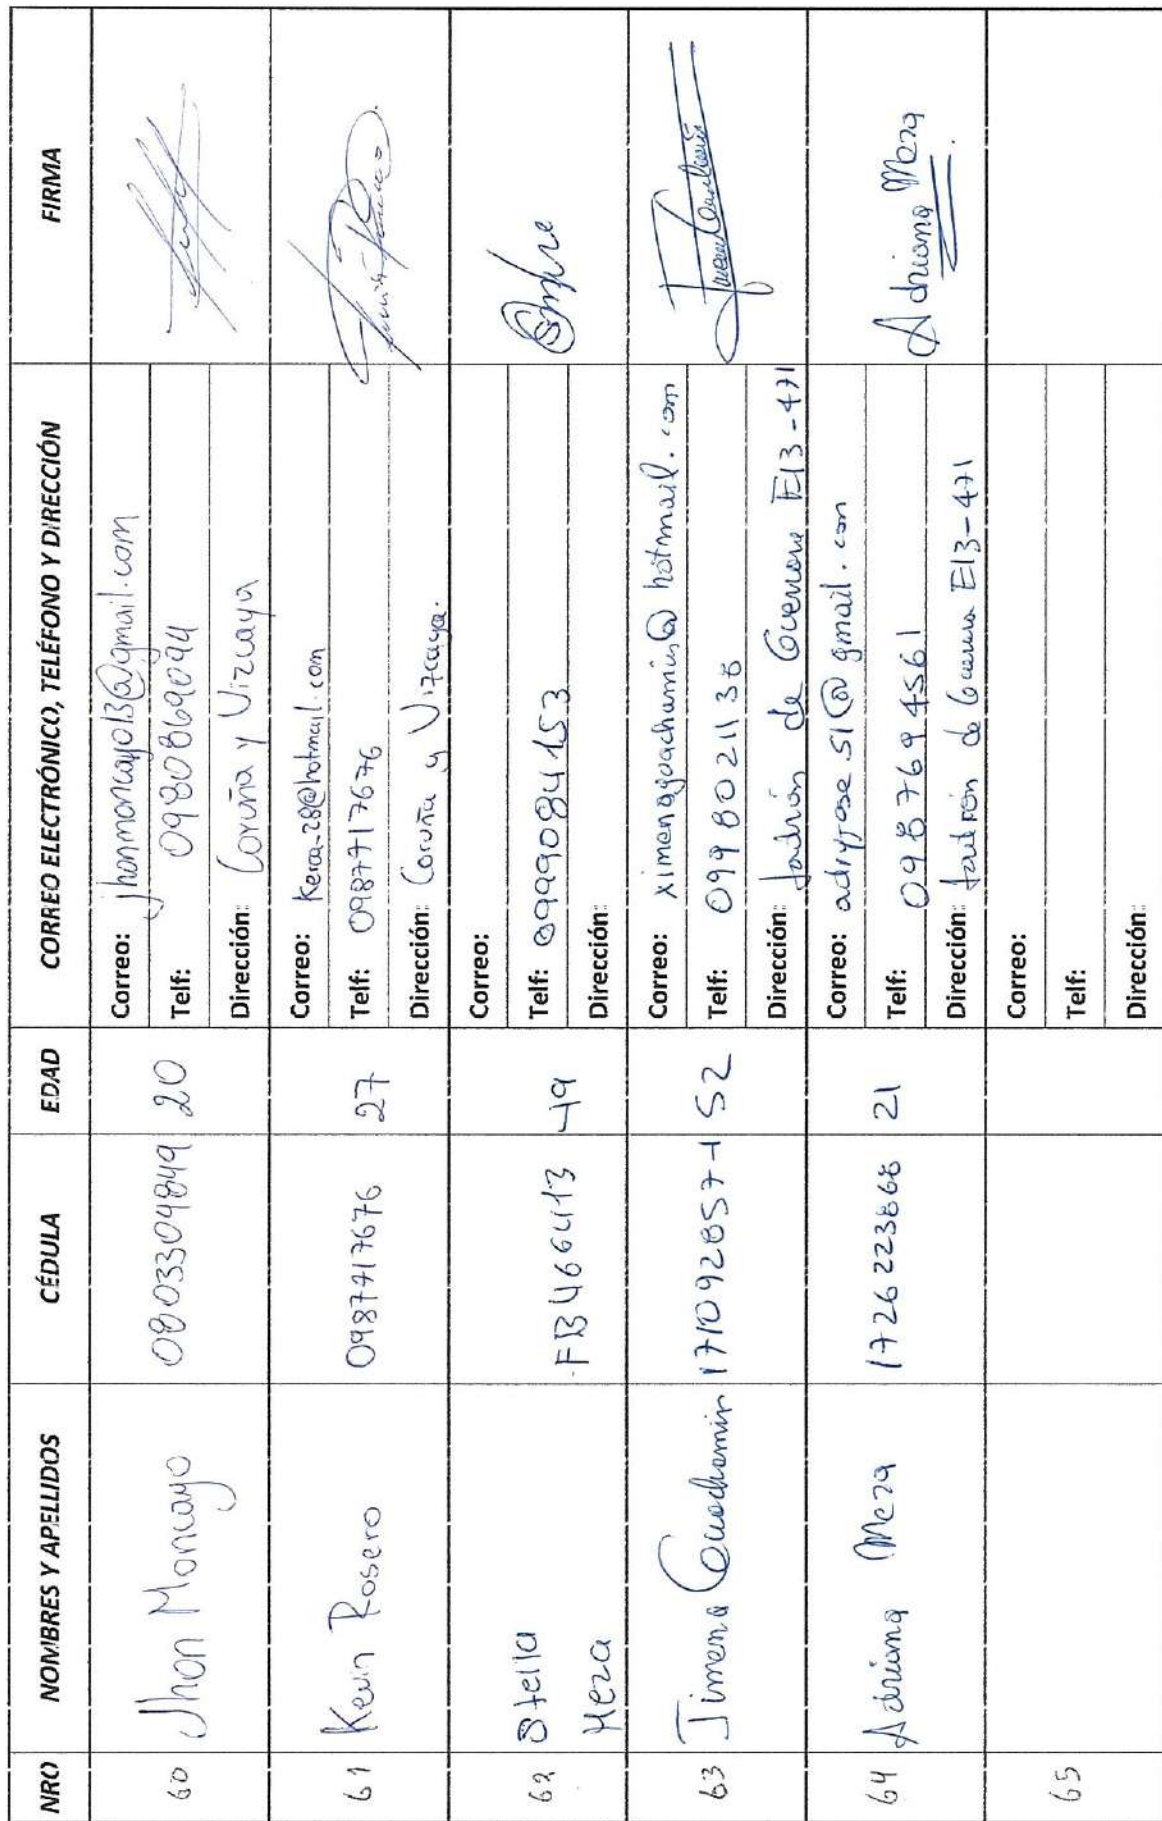 NRO NOMBRES Y APELLIDOS CÉDULA EDAD CORREO ELECTRÓNICO, TELÉFONO Y DIRECCIÓN FIRMA
60 Jhon Moncayo 0803304849 20
Correo: jhonmoncayo13@gmail.com
Telf: 0980869094
Dirección: Coruña y Vizcaya
61 Kevin Rosero 0987717676 27
Correo: Keroa-28@hotmail.com
Telf: 0987717676
Dirección: Coruña y Vizcaya.
62 Stella
Meza
FB466413 49
Correo:
Telf: 0999084153
Dirección:
63 Jimena Guachamin 171092857-1 52
Correo: ximenaguachamin@hotmail.com
Telf: 0998021138
Dirección: Ladrón de Guevara E13-471
64 Adriana Meza 1726223868 21
Correo: adryjose.51@gmail.com
Telf: 0987694561
Dirección: Ladrón de Guevara E13-471
Adriana Meza
65
Correo:
Telf:
Dirección: